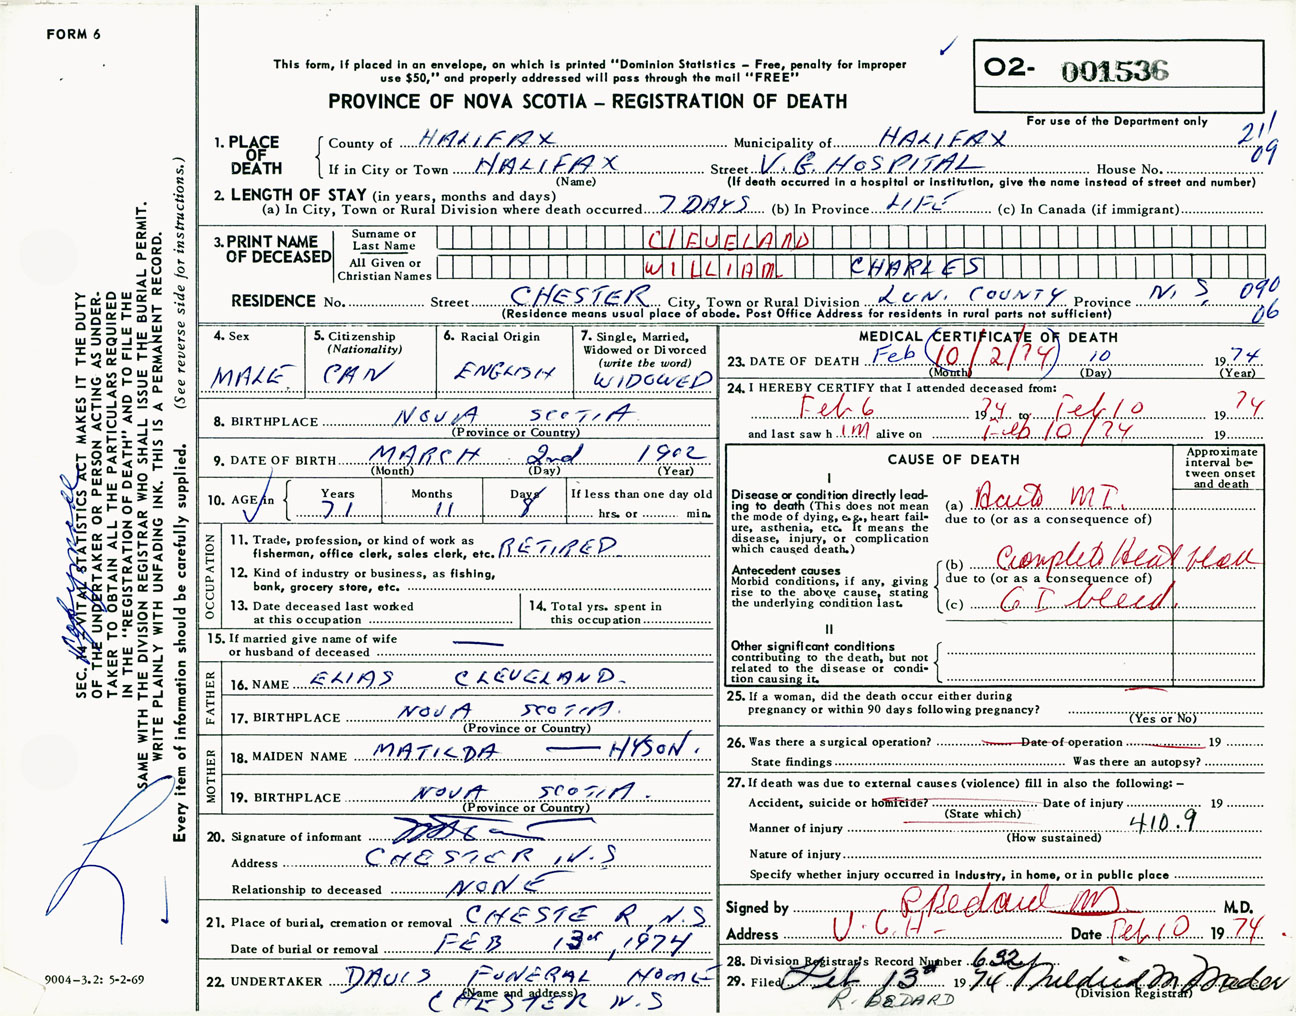 FORM 6
This form, if placed in an envelope, on which is printed "Dominion Statistics – Free, penalty for improper
use $50," and properly addressed will pass through the mail "FREE"
PROVINCE OF NOVA SCOTIA – REGISTRATION OF DEATH
02- 001536
For use of the Department only
211
09
1. PLACE OF DEATH
County of HALIFAX Municipality of HALIFAX
If in City or Town HALIFAX Street V.G. HOSPITAL House No.
(Name) (If death occurred in a hospital or institution, give the name instead of street and number)
2. LENGTH OF STAY (in years, months and days)
(a) In City, Town or Rural Division where death occurred 7 DAYS (b) In Province LIFE (c) In Canada (if immigrant)
3. PRINT NAME OF DECEASED
Surname or Last Name CLEVELAND
All Given or Christian Names WILLIAM CHARLES
RESIDENCE No. Street CHESTER City, Town or Rural Division LUN. COUNTY Province N.S. 090
06
(Residence means usual place of abode. Post Office Address for residents in rural parts not sufficient)
4. Sex
MALE
5. Citizenship
(Nationality)
CAN
6. Racial Origin
ENGLISH
7. Single, Married,
Widowed or Divorced
(write the word)
WIDOWED
8. BIRTHPLACE NOVA SCOTIA
(Province or Country)
9. DATE OF BIRTH MARCH 2nd 1902
(Month) (Day) (Year)
10. AGE in
Years Months Days If less than one day old
71 11 8 hrs. or min.
OCCUPATION
11. Trade, profession, or kind of work as
fisherman, office clerk, sales clerk, etc. RETIRED
12. Kind of industry or business, as fishing,
bank, grocery store, etc.
13. Date deceased last worked
at this occupation
14. Total yrs. spent in
this occupation
15. If married give name of wife
or husband of deceased
FATHER
16. NAME ELIAS CLEVELAND
17. BIRTHPLACE NOVA SCOTIA
(Province or Country)
MOTHER
18. MAIDEN NAME MATILDA HYSON.
19. BIRTHPLACE NOVA SCOTIA.
(Province or Country)
20. Signature of informant
Address CHESTER N.S
Relationship to deceased NONE
21. Place of burial, cremation or removal CHESTER, N.S
Date of burial or removal FEB 13rd, 1974
22. UNDERTAKER DAVIS FUNERAL HOME
(Name and address)
CHESTER N.S
MEDICAL CERTIFICATE OF DEATH
10/2/74
23. DATE OF DEATH Feb 10 1974
(Month) (Day) (Year)
24. I HEREBY CERTIFY that I attended deceased from:
Feb 6 1974 to Feb 10 1974
and last saw him alive on Feb 10/74 19
CAUSE OF DEATH
Approximate
interval be-
tween onset
and death
I
Disease or condition directly lead-
ing to death (This does not mean
the mode of dying, e.g., heart fail-
ure, asthenia, etc. It means the
disease, injury, or complication
which caused death.)
(a) Acute M I.
due to (or as a consequence of)
Antecedent causes
Morbid conditions, if any, giving
rise to the above cause, stating
the underlying condition last.
(b) Complete Heart block
due to (or as a consequence of)
(c) G I bleed
II
Other significant conditions
contributing to the death, but not
related to the disease or condi-
tion causing it.
25. If a woman, did the death occur either during
pregnancy or within 90 days following pregnancy?
(Yes or No)
26. Was there a surgical operation? Date of operation 19
State findings Was there an autopsy?
27. If death was due to external causes (violence) fill in also the following: –
Accident, suicide or homicide? Date of injury 19
(State which)
410.9
Manner of injury
(How sustained)
Nature of injury
Specify whether injury occurred in industry, in home, or in public place
Signed by R Bedard MD. M.D.
Address V.G.H. Date Feb 10 1974.
28. Division Registrar's Record Number 632
29. Filed Feb 13th 1974 Mildred M Meader
(Division Registrar)
R. BEDARD
SEC. 14 VITAL STATISTICS ACT MAKES IT THE DUTY
OF THE UNDERTAKER OR PERSON ACTING AS UNDER-
TAKER TO OBTAIN ALL THE PARTICULARS REQUIRED
IN THE "REGISTRATION OF DEATH" AND TO FILE THE
SAME WITH THE DIVISION REGISTRAR WHO SHALL ISSUE THE BURIAL PERMIT.
WRITE PLAINLY WITH UNFADING INK. THIS IS A PERMANENT RECORD.
Every item of information should be carefully supplied. (See reverse side for instructions.)
9004-3.2: 5-2-69